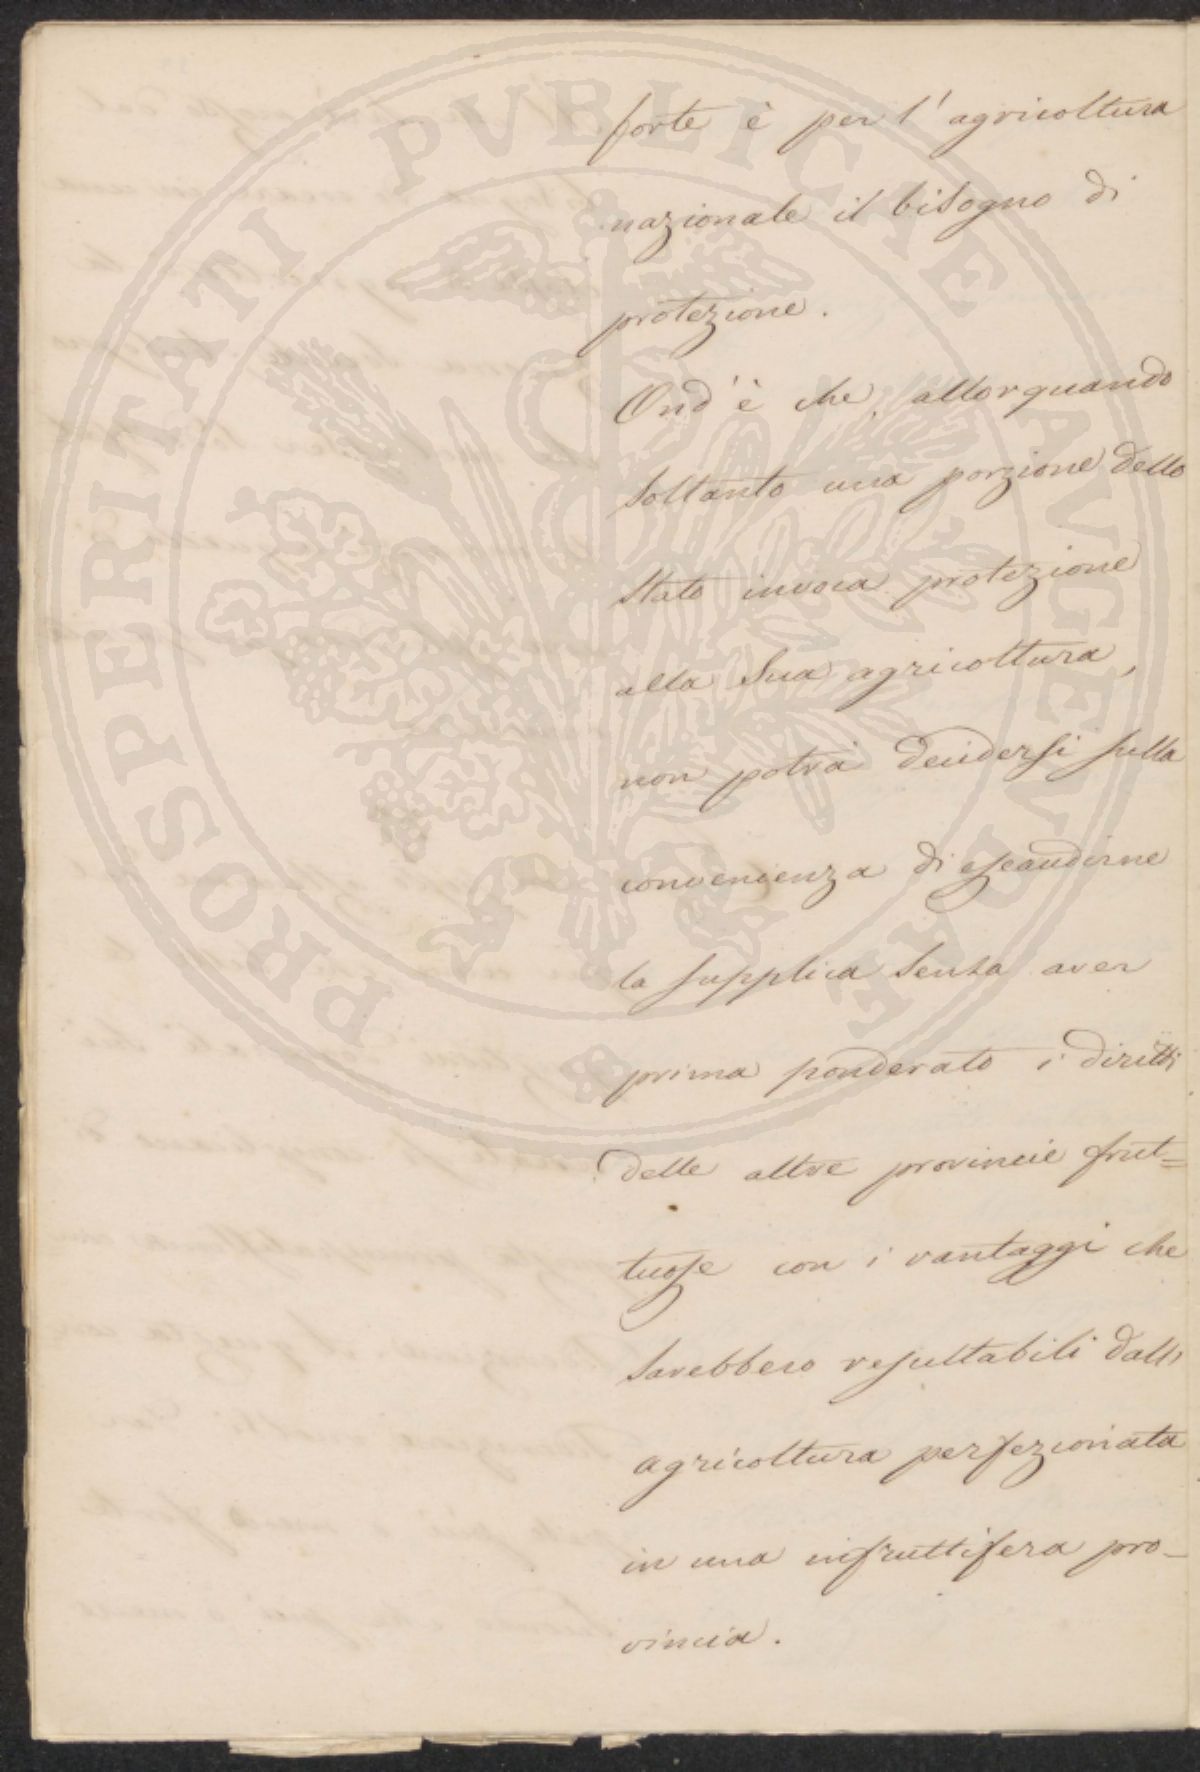 forte è per l'agricoltura
nazionale il bisogno di
protezione.
Ond'è che, allorquando
soltanto una porzione dello
Stato invoca protezione
alla sua agricoltura,
non potrà decidersi sulla
convenienza di esaudirne
la supplica senza aver
prima ponderato i diritti
delle altre provincie frut=
tuose con i vantaggi che
sarebbero resultabili dall'
agricoltura perfezionata
in una infruttifera pro-
vincia.
PROSPERITATI PVBLICAE AVGENDAE